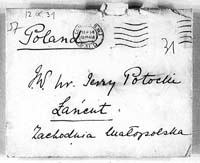 12 IX 31
Poland
31
J.W. hr. Jerzy Potocki
Łańcut
Zachodnia Małopolska